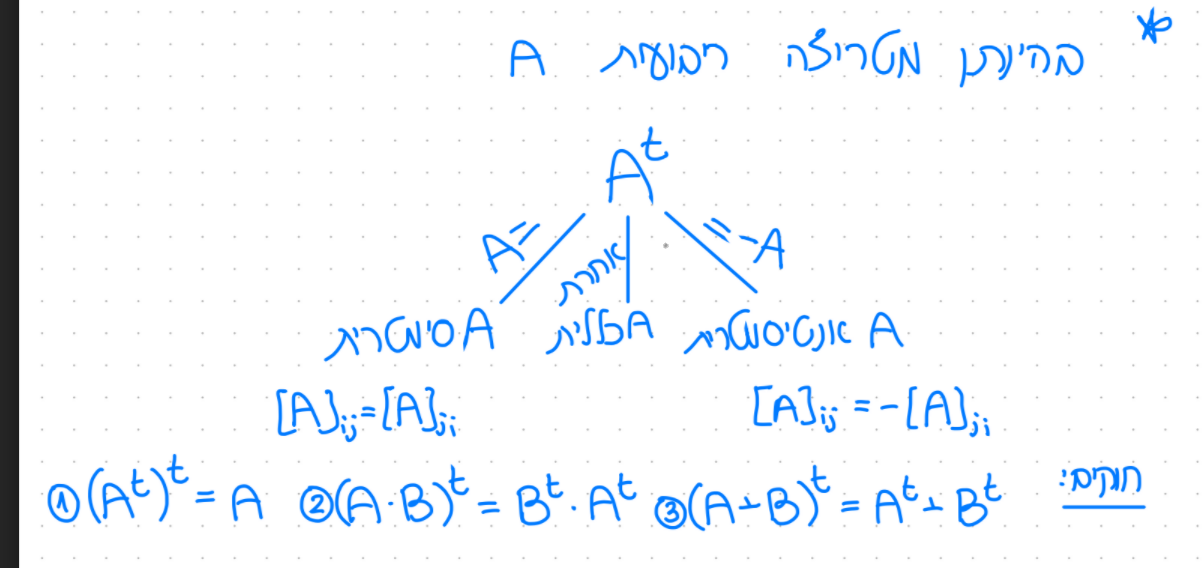 * בהינתן מטריצה ריבועית A
A^t
A= אחרת =-A
A אנטיסימטרית A כללית A סימטרית
[A]ij = -[A]ji [A]ij = [A]ji
חוקים: ③(A+B)^t = A^t + B^t ②(A·B)^t = B^t · A^t ①(A^t)^t = A